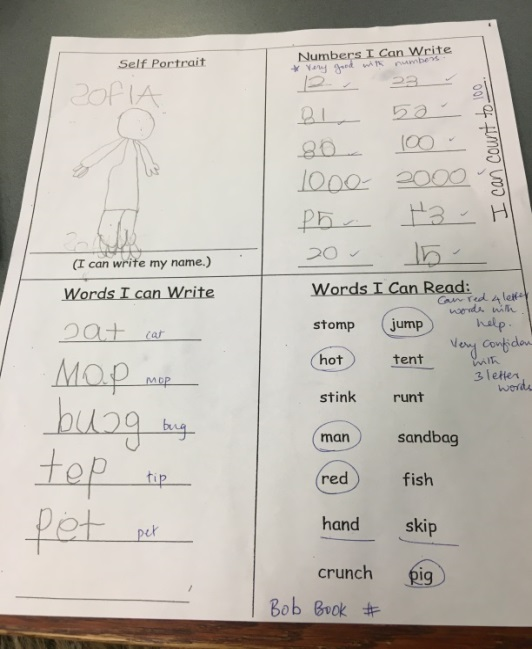 Self Portrait
SOFIA
(I can write my name.)
Numbers I Can Write
* Very good with numbers.
12 ✓ 23 ✓
81 ✓ 52 ✓
80 ✓ 100 ✓
1000 ✓ 2000 ✓
P5 ✓ 43 ✓
20 ✓ 15 ✓
I can count to 100.
Words I can Write
cat cat
Mop mop
bug
tep tip
pet pet
Words I Can Read:
Can red 4 letter
words with
help.
Very confiden
with
3 letter
words
stomp jump
hot tent
stink runt
man sandbag
red fish
hand skip
crunch pig
Bob Book #